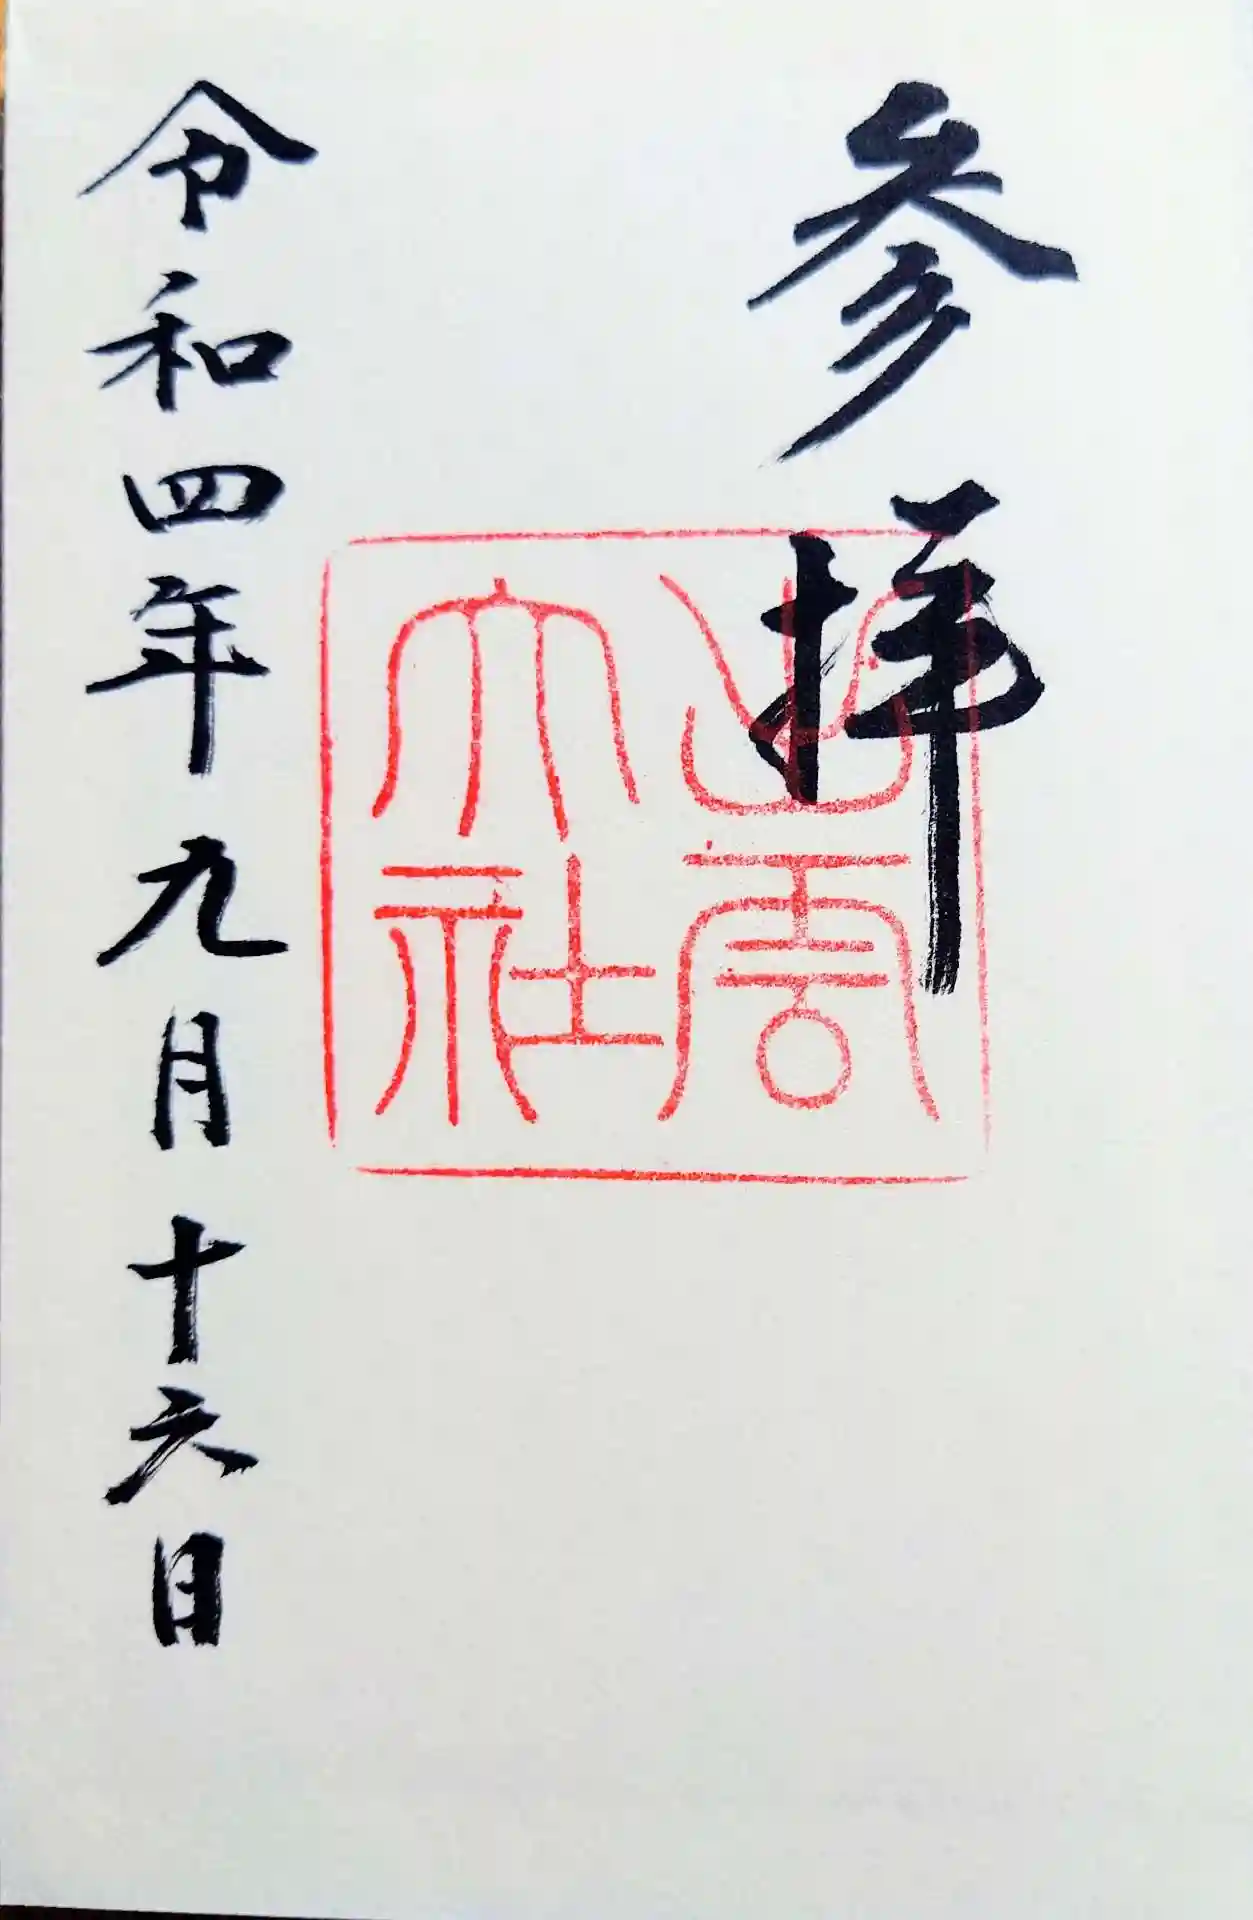 参拝
出雲
大社
令和四年九月十六日